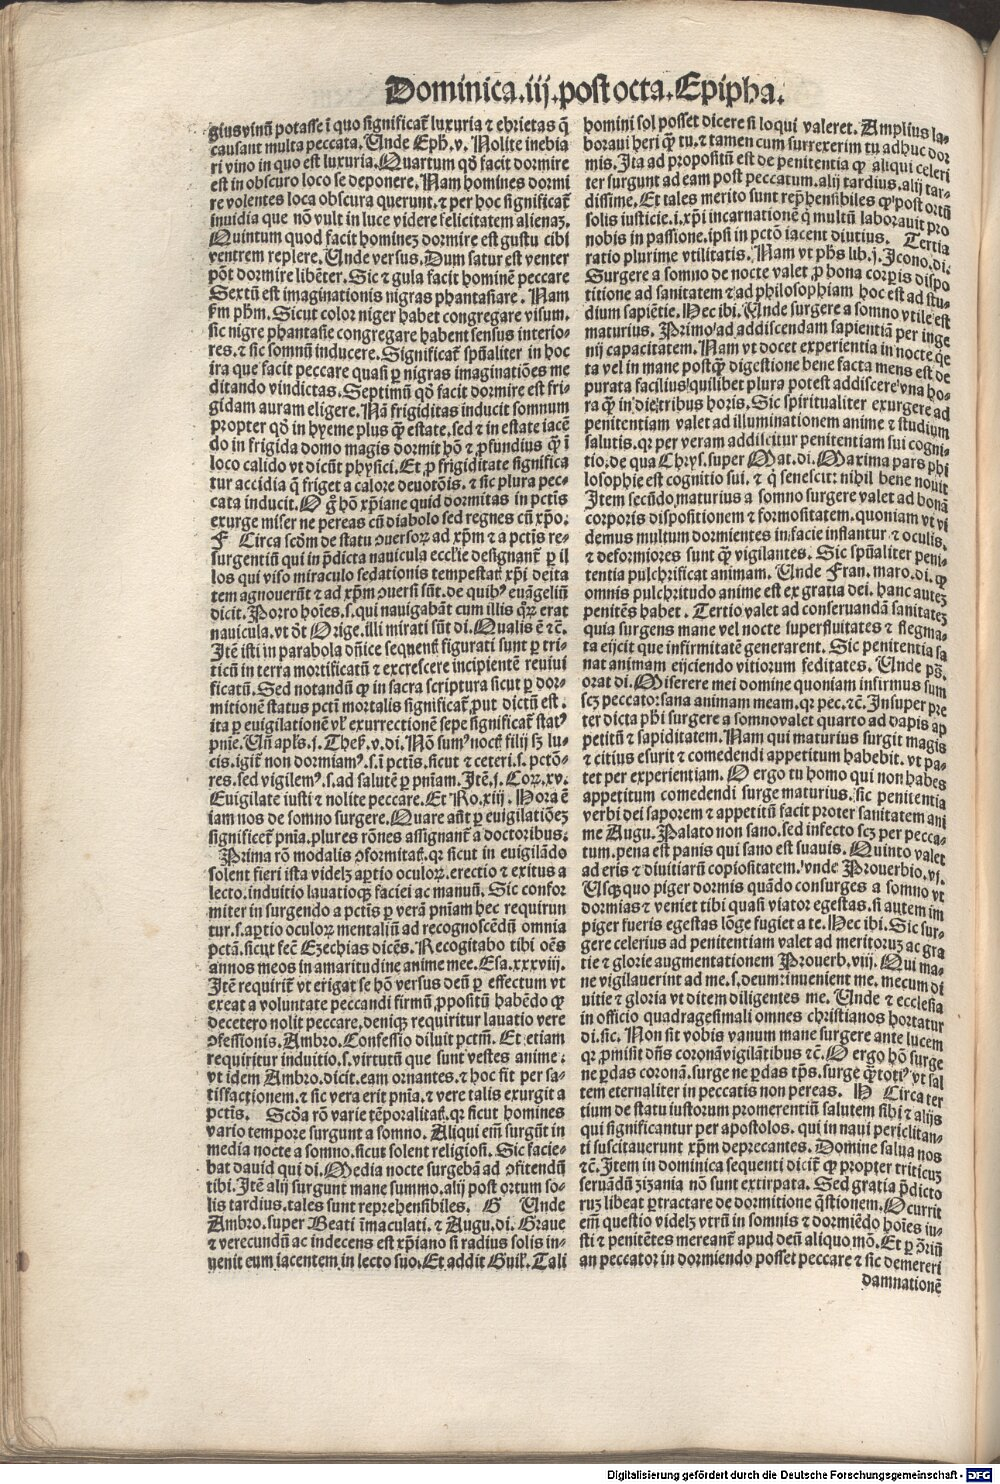 Dominica.iij.post octa.Epipha.
gius vinū potasse ī quo significat̄ luxuria ⁊ ebrietas q̄
causant multa peccata. Unde Eph̄.v. Nolite inebia
ri vino in quo est luxuria. Quartum qd̄ facit dormire
est in obscuro loco se deponere. Nam homines dormi
re volentes loca obscura querunt. ⁊ per hoc significat̄
inuidia que nō vult in luce videre felicitatem alienaꝫ.
Quintum quod facit homineꝫ dormire est gustu cibi
ventrem replere. Unde versus. Dum satur est venter
pōt dormire libēter. Sic ⁊ gula facit hominē peccare
Sextū est imaginationis nigras phantasiare. Nam
fm̄ ph̄m. Sicut color niger habet congregare visum.
sic nigre phantasie congregare habent sensus interio-
res.⁊ sic somnū inducere. Significat̄ spūaliter in hoc
ira que facit peccare quasi ꝑ nigras imaginatiōes me
ditando vindictas. Septimū qd̄ facit dormire est fri-
gidam auram eligere. Nā frigiditas inducit somnum
propter qd̄ in hyeme plus q̄ȝ estate. sed ⁊ in estate iacē
do in frigida domo magis dormit hō ⁊ ꝓfundius q̄ȝ ī
loco calido vt dicūt physici. Et ꝓ frigiditate significa
tur accidia q̄ friget a calore deuotōis. ⁊ sic plura pec-
cata inducit. O g̊ hō xp̄iane quid dormitas in pctīs
exurge miser ne pereas cū diabolo sed regnes cū xp̄o.
F Circa scd̄m de statu ꝯuersoꝝ ad xp̄m ⁊ a pctīs re-
surgentiū qui in p̄dicta nauicula eccl̄ie designant̄ ꝑ il
los qui viso miraculo sedationis tempestat̄ xp̄i deita
tem agnouerūt ⁊ ad xp̄m ꝯuersi sūt. de quibꝰ euāgeliū
dicit. Porro hoīes.s.qui nauigabāt cum illis qōꝝ erat
nauicula. vt dt̄ Orige. illi mirati sūt di. Qualis ē ⁊c̄.
Itē isti in parabola dn̄ice sequent̄ figurati sunt ꝑ tri-
ticū in terra mortificatū ⁊ excrescere incipientē reuiui
ficatū. Sed notandū ꝙ in sacra scriptura sicut ꝑ dor-
mitionē status pctī mortalis significat̄ ꝓut dictū est.
ita ꝑ euigilationē vl̄ exurrectionē sepe significat̄ statꝰ
pn̄ie. Un̄ apl̄s.j.Thes̄.v.di. Nō sumꝰ noct̄ filij sꝫ lu-
cis. igit̄ non dormiamꝰ.s.ī pctīs. sicut ⁊ ceteri.s.pctō-
res. sed vigilemꝰ.s.ad salutē ꝑ pn̄iam. Itē.j.Coꝝ.xv.
Euigilate iusti ⁊ nolite peccare. Et Ro.xiij. Hora ē
iam nos de somno surgere. Quare aūt ꝑ euigilatiōeꝫ
significet̄ pn̄ia. plures rōnes assignant̄ a doctoribus.
Prima rō modalis ꝯformitat̄. qꝛ sicut in euigilādo
solent fieri ista videlꝫ aꝑtio oculoꝝ. erectio ⁊ exitus a
lecto. induitio lauatioqꝫ faciei ac manuū. Sic confor
miter in surgendo a pctīs ꝑ verā pn̄iam hec requirun
tur.s.aꝑtio oculoꝝ mentaliū ad recognoscēdū omnia
pctā. sicut fec̄ Ezechias dicēs. Recogitabo tibi oēs
annos meos in amaritudine anime mee. Esa.xxxviij.
Itē requirit̄ vt erigat se hō versus deū ꝑ effectum vt
exeat a voluntate peccandi firmū ꝓpositū habēdo ꝙ
decetero nolit peccare. deniqꝫ requiritur lauatio vere
ꝯfessionis. Ambro. Confessio diluit pctm̄. Et etiam
requiritur induitio.s.virtutū que sunt vestes anime.
vt idem Ambro.dicit. eam ornantes. ⁊ hoc fit per sa-
tisfactionem. ⁊ sic vera erit pn̄ia. ⁊ vere talis exurgit a
pctīs. Scd̄a rō varie tēporalitat̄. qꝛ sicut homines
vario tempore surgunt a somno. Aliqui em̄ surgūt in
media nocte a somno. sicut solent religiosi. Sic facie-
bat dauid qui di. Media nocte surgebā ad ꝯfitendū
tibi. Itē alij surgunt mane summo. alij post ortum so-
lis tardius. tales sunt reprehensibiles. G Unde
Ambro.super Beati īmaculati. ⁊ Augu.di. Graue
⁊ verecundū ac indecens est xp̄iano si radius solis in-
uenit eum iacentem in lecto suo. Et addit Guil̄. Tali
homini sol posset dicere si loqui valeret. Amplius la-
boraui heri q̄ȝ tu. ⁊ tamen cum surrexerim tu adhuc dor
mis. Ita ad propositū est de penitentia ꝙ aliqui celeri
ter surgunt ad eam post peccatum. alij tardius. alij tar-
dissime. Et tales merito sunt rep̄hensibiles ꝙ post ortū
solis iusticie.i.xp̄i incarnationē q̄ multū laborauit pro
nobis in passione. ipsi in pctō iacent diutius. Tertia
ratio plurime vtilitatis. Nam vt ph̄s lib.j.Icono.di.
Surgere a somno de nocte valet ꝓ bona corꝑis dispo
titione ad sanitatem ⁊ ad philosophiam hoc est ad stu
dium sapiētie. Hec ibi. Unde surgere a somno vtile est
maturius. Primo ad addiscendam sapientiā per inge
nij capacitatem. Nam vt docet experientia in nocte q̄e
ta vel in mane postq̄ȝ digestione bene facta mens est de
purata facilius quilibet plura potest addiscere vna ho-
ra q̄ȝ in die tribus horis. Sic spiritualiter exurgere ad
penitentiam valet ad illuminationem anime ⁊ studium
salutis. qꝛ per veram addiscitur penitentiam sui cogni-
tio. de qua Chrys.super Mat.di. Maxima pars phi
losophie est cognitio sui. ⁊ q̇ senescit: nihil bene nouit
Item secūdo maturius a somno surgere valet ad bonā
corporis dispositionem ⁊ formositatem. quoniam vt vi
demus multum dormientes in facie inflantur ⁊ oculis.
⁊ deformiores sunt q̄ȝ vigilantes. Sic spūaliter peni-
tentia pulchrificat animam. Unde Fran.maro.di. ꝙ
omnis pulchritudo anime est ex gratia dei. hanc auteꝫ
penitēs habet. Tertio valet ad conseruandā sanitateꝫ
quia surgens mane vel nocte superfluitates ⁊ flegma-
ta eijcit que infirmitatē generarent. Sic penitentia sa
nat animam eijciendo vitiorum feditates. Unde ps̄.
orat di. Miserere mei domine quoniam infirmus sum
scꝫ peccator. sana animam meam. qꝛ pec.⁊c̄. Insuper pre
ter dicta ph̄i surgere a somno valet quarto ad dapis ap
petitū ⁊ sapiditatem. Nam qui maturius surgit magis
⁊ citius esurit ⁊ comedendi appetitum habebit. vt pa-
tet per experientiam. O ergo tu homo qui non habes
appetitum comedendi surge maturius. sic penitentia
verbi dei saporem ⁊ appetitū facit propter sanitatem ani
me Augu. Palato non sano. sed infecto scꝫ per pecca-
tum. pena est panis qui sano est suauis. Quinto valet
ad eris ⁊ diuitiarū copiositatem. vnde Prouerbio.vj.
Usqꝫquo piger dormis quādo consurges a somno vt
dormias ⁊ veniet tibi quasi viator egestas. si autem im
piger fueris egestas lōge fugiet a te. Hec ibi. Sic sur-
gere celerius ad penitentiam valet ad meritoruꝫ ac gra
tie ⁊ glorie augmentationem Prouerb.viij. Qui ma-
ne vigilauerint ad me.s.deum: inuenient me. mecum di
uitie ⁊ gloria vt ditem diligentes me. Unde ⁊ ecclesia
in officio quadragesimali omnes christianos hortatur
di. sic. Non sit vobis vanum mane surgere ante lucem
qꝛ ꝓmisit dn̄s coronā vigilātibus ⁊c̄. O ergo hō surge
ne ꝑdas coronā. surge ne ꝑdas tp̄s. surge q̄ȝtotiꝰ vt sal
tem eternaliter in peccatis non pereas. H Circa ter
tium de statu iustorum promerentiū salutem sibi ⁊ alijs
qui significantur per apostolos. qui in naui periclitan-
ti suscitauerunt xp̄m deprecantes. Domine salua nos
⁊c̄. Item in dominica sequenti dicit̄ ꝙ propter triticuꝫ
seruādū zizania nō sunt extirpata. Sed gratia p̄dicto
ruꝫ libeat ꝑtractare de dormitione q̄stionem. Occurrit
em̄ questio videlꝫ vtrū in somnis ⁊ dormiēdo hoīes iu-
sti ⁊ penitētes mereant̄ apud deū aliquo mō. Et ꝑ ꝯ̄riū
an peccator in dormiendo posset peccare ⁊ sic demereri
damnationē
Digitalisierung gefördert durch die Deutsche Forschungsgemeinschaft - DFG